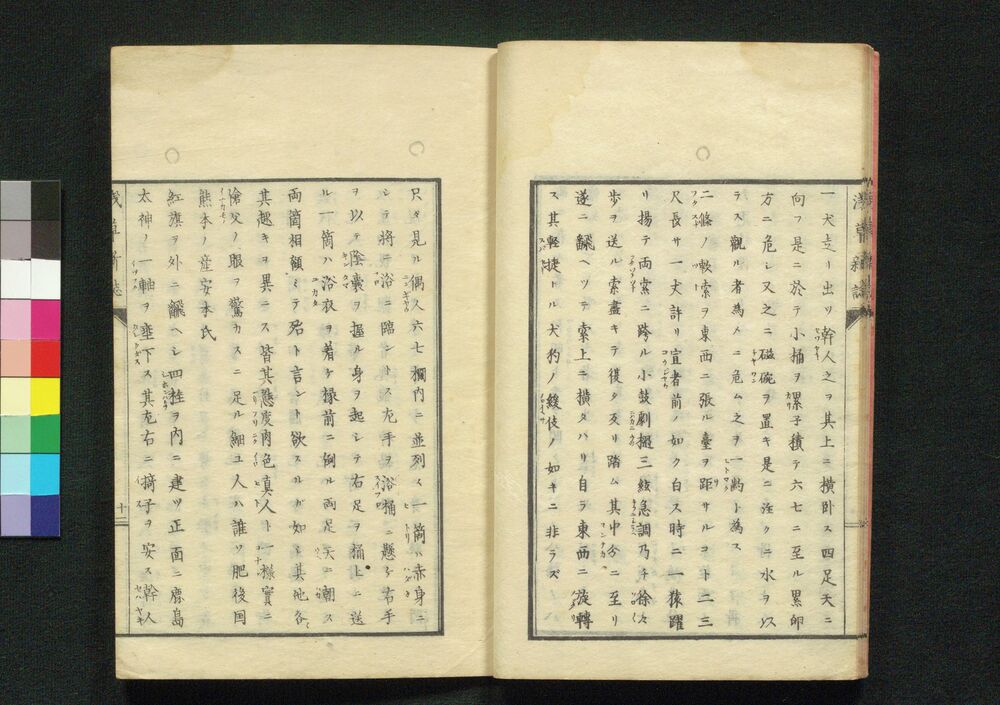 一犬走リ出ツ幹人之ヲ其上ニ横卧ス四足天ニ
向フ是ニ於テ小桶ヲ螺子積テ六七ニ至ル累卵
方ニ危シ又之ニ磁碗ヲ置キ是ニ注クニ水ヲ以
テス觀ル者為メニ危ム之ヲ一齣ト為ス
二條ノ軟索ヲ東西ニ張ル臺ヲ距サルコト二三
尺長サ一丈許リ宣者前ノ如ク白ス時ニ一猿躍
リ揚テ両索ニ跨ル小鼓劇掇三絃急調乃チ徐々
歩ヲ送ル索盡キテ復タ反リ踏ム其中分ニ至リ
遂ニ飜ヘツテ索上ニ横タハリ自ラ東西ニ旋轉
ス其軽捷ナル犬狗ノ緩伎ノ如キニ非ラズ
尺タ見ル偶人六七欄内ニ並列ス一箇ハ赤身ニ
シテ將ニ浴ニ臨ントス左手ヲ浴桶ニ懸ケ右手
ヲ以テ陰嚢ヲ握ル身ヲ起シテ右足ヲ桶上ニ送
ル一箇ハ浴衣ヲ着ケ椽前ニ倒ル両足天ニ朝ス
両箇相顧ミテ殆ト言ント欲スルガ如シ其他各
其趣キヲ異ニス皆其態度肉色真人ト一樣實ニ
傖父ノ眼ヲ驚カスニ足ル細工人ハ誰ソ肥後国
熊本ノ産安本氏
紅旗ヲ外ニ飜ヘシ四柱ヲ内ニ建ツ正面ニ鹿島
太神ノ一軸ヲ垂下ス其左右ニ椅子ヲ安ス幹人
十二